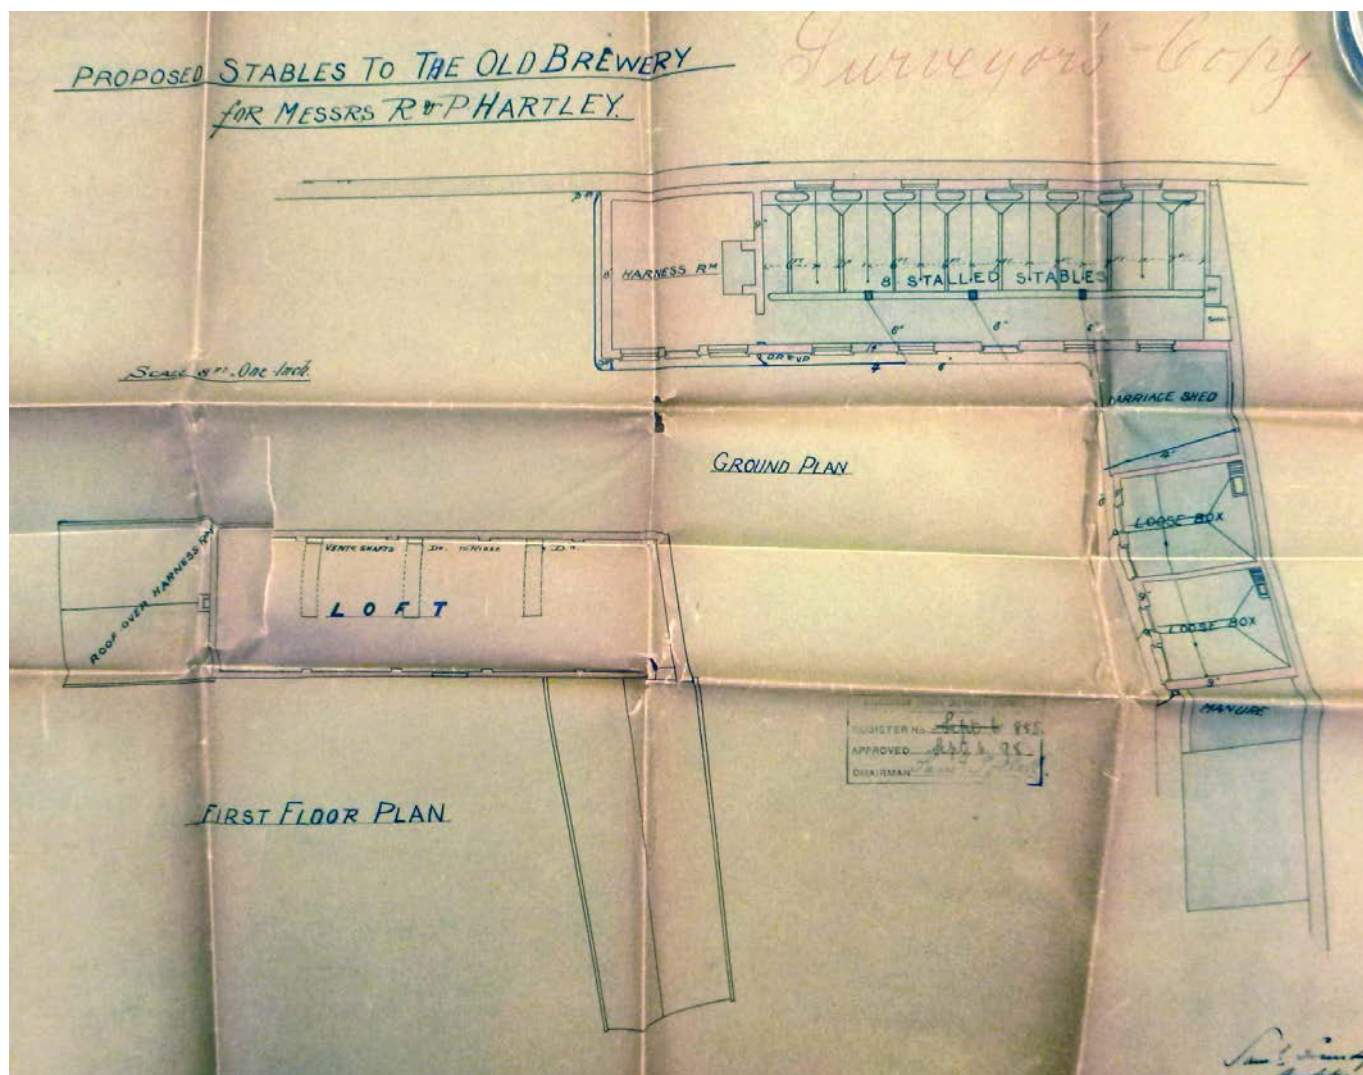 PROPOSED STABLES TO THE OLD BREWERY
for MESSRS R & P HARTLEY.
Surveyor's Copy
HARNESS RM
8 STALLED STABLES
SCALE 8 FT. One Inch.
CARRIAGE SHED
GROUND PLAN
LOOSE BOX
LOOSE BOX
MANURE
ROOF OVER HARNESS RM
VENTG SHAFTS
LOFT
REGISTER No. Sept 6 885
APPROVED Sept 6 98
CHAIRMAN
FIRST FLOOR PLAN